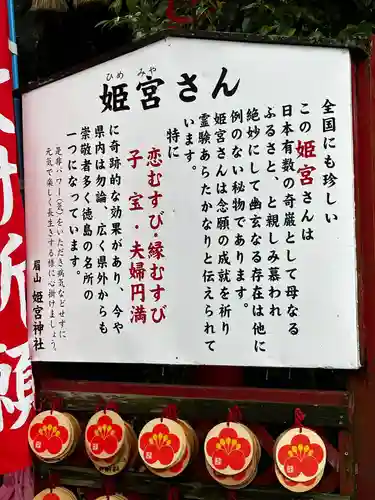 姫宮さん
ひめ みや
全国にも珍しい
この姫宮さんは
日本有数の奇巌として母なる
ふるさと、と親しみ慕われ
絶妙にして幽玄なる存在は他に
例のない秘物であります。
姫宮さんは念願の成就を祈り
霊験あらたかなりと伝えられて
います。
特に
恋むすび・縁むすび
子宝・夫婦円満
に奇跡的な効果があり、今や
県内は勿論、広く県外からも
崇敬者多く徳島の名所の
一つになっています。
是非パワー(気)をいただき病気などせずに
元気で楽しく長生きする様に心掛けましょう。
眉山 姫宮神社
祈願